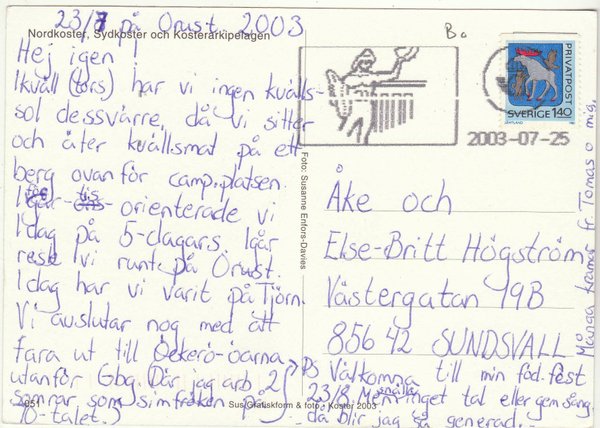 23/7 på Orust 2003
Nordkoster, Sydkoster och Kosterarkipelagen
Hej igen
Ikväll (tors) har vi ingen kvälls-
sol dessvärre, då vi sitter
och äter kvällsmat på ett
berg ovanför camp.platsen.
orienterade vi
Idag på 5-dagars. Igår
reste vi runt på Orust.
Idag har vi varit på Tjörn.
Vi avslutar nog med att
fara ut till Öckerö-öarna
utanför Gbg. Där jag arb 2
somrar som simfröken på
70-talet.)
4051
Sus Grafiskform & foto, Koster 2003
Foto: Susanne Enfors-Davies
B.
PRIVATPOST
SVERIGE 140
2003-07-25
Åke och
Else-Britt Högström
Västergatan 19B
856 42 SUNDSVALL
PS Välkomna till min föd.fest
23/8. Men snälla inget tal eller gem.sång.
da blir jag så generad.
Många kramar fr Tomas o mig,